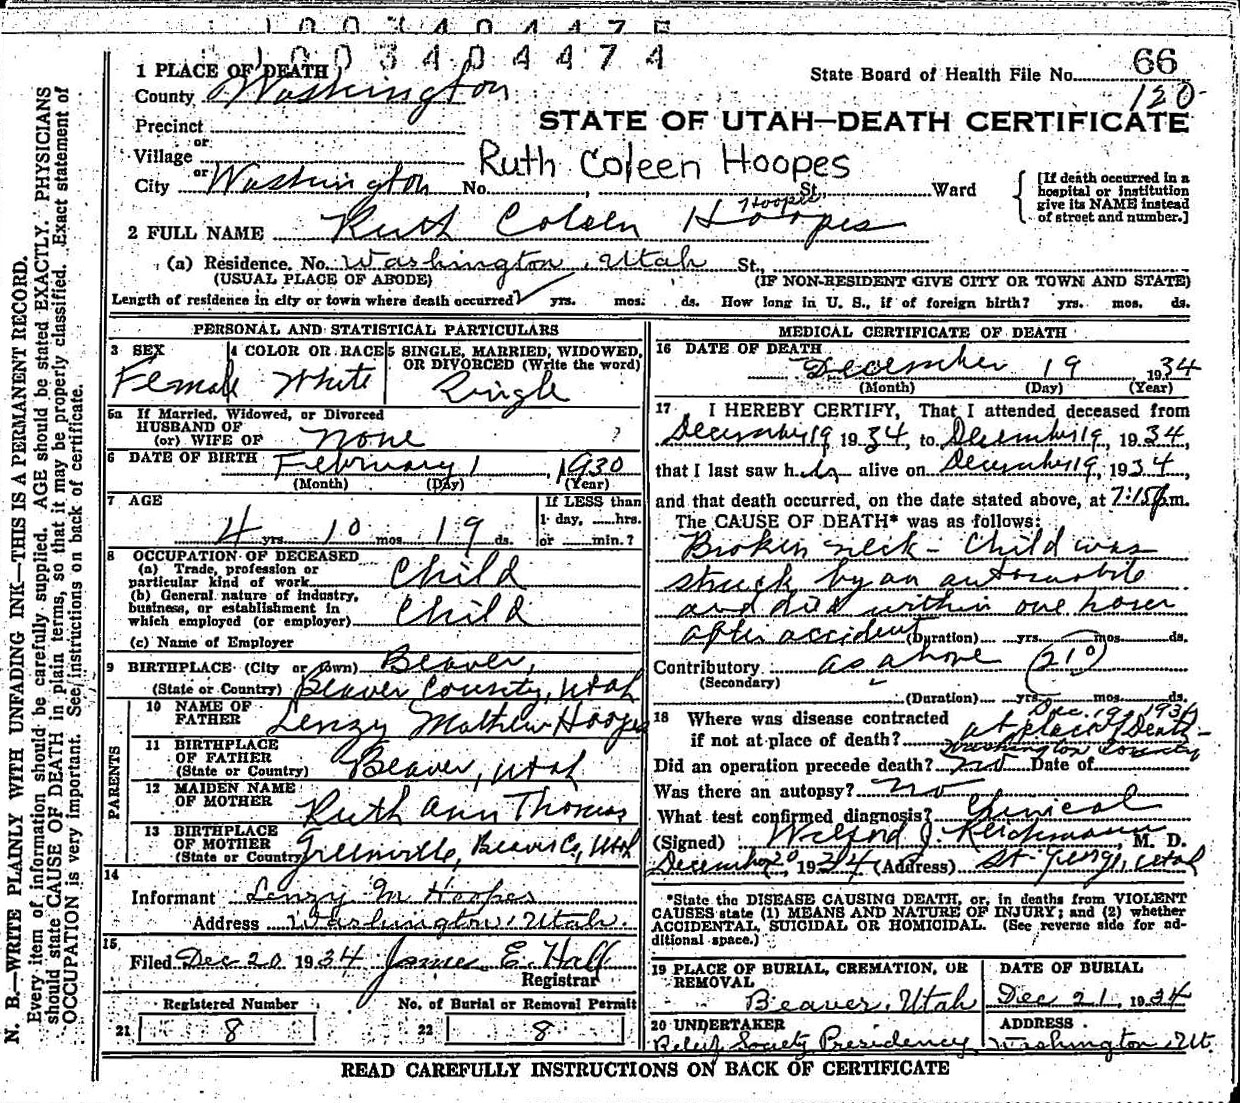 1003404475
1003404474
66
State Board of Health File No.
120
1 PLACE OF DEATH
County Washington
STATE OF UTAH—DEATH CERTIFICATE
Precinct
or
Village
Ruth Coleen Hoopes
or
City Washington No. St. Ward
[If death occurred in a hospital or institution give its NAME instead of street and number.]
Hoopes
2 FULL NAME Ruth Coleen Hoopes
(a) Residence. No. Washington, Utah St.,
(USUAL PLACE OF ABODE) (IF NON-RESIDENT GIVE CITY OR TOWN AND STATE)
Length of residence in city or town where death occurred? yrs. mos. ds. How long in U. S., if of foreign birth? yrs. mos. ds.
PERSONAL AND STATISTICAL PARTICULARS
3 SEX
Female
4 COLOR OR RACE
White
5 SINGLE, MARRIED, WIDOWED, OR DIVORCED (Write the word)
Single
5a If Married, Widowed, or Divorced
HUSBAND OF
(or) WIFE OF None ?
6 DATE OF BIRTH February 1, 1930
(Month) (Day) (Year)
7 AGE
4 yrs. 10 mos. 19 ds.
If LESS than
1 day, ......hrs.
or ......min.?
8 OCCUPATION OF DECEASED
(a) Trade, profession or
particular kind of work Child
(b) General nature of industry,
business, or establishment in
which employed (or employer) Child
(c) Name of Employer
9 BIRTHPLACE (City or town) Beaver,
(State or Country) Beaver County, Utah
PARENTS
10 NAME OF
FATHER Lenzy Mathew Hoopes
11 BIRTHPLACE
OF FATHER
(State or Country) Beaver, Utah
12 MAIDEN NAME
OF MOTHER Ruth Ann Thomas
13 BIRTHPLACE
OF MOTHER
(State or Country) Greenville, Beaver Co, Utah
14
Informant Lenzy M Hoopes
Address Washington, Utah.
15
Filed Dec 20 1934 James E. Hall
Registrar
Registered Number No. of Burial or Removal Permit
21 8 22 8
MEDICAL CERTIFICATE OF DEATH
16 DATE OF DEATH
December 19 1934
(Month) (Day) (Year)
17 I HEREBY CERTIFY, That I attended deceased from
December 19 1934, to December 19, 1934,
that I last saw her alive on December 19, 1934
and that death occurred, on the date stated above, at 7:15 p.m.
The CAUSE OF DEATH* was as follows:
Broken neck - Child was
struck by an automobile
and died within one hour
after accident (Duration) yrs. mos. ds.
Contributory as above (210)
(Secondary)
(Duration) yrs. mos. ds.
Dec. 19, 1934
18 Where was disease contracted
if not at place of death? at place of Death -
Washington County
Did an operation precede death? no Date of
Was there an autopsy? no
What test confirmed diagnosis? Clinical
(Signed) Wilford J. Reichmann, M. D.
December 20, 1934 (Address) St. George, Utah
*State the DISEASE CAUSING DEATH, or, in deaths from VIOLENT
CAUSES state (1) MEANS AND NATURE OF INJURY; and (2) whether
ACCIDENTAL, SUICIDAL OR HOMICIDAL. (See reverse side for ad-
ditional space.)
19 PLACE OF BURIAL, CREMATION, OR
REMOVAL
Beaver, Utah
DATE OF BURIAL
Dec 21, 1934
20 UNDERTAKER
Relief Society Presidency
ADDRESS
Washington, Ut.
READ CAREFULLY INSTRUCTIONS ON BACK OF CERTIFICATE
N. B.—WRITE PLAINLY WITH UNFADING INK—THIS IS A PERMANENT RECORD.
Every item of information should be carefully supplied. AGE should be stated EXACTLY. PHYSICIANS
should state CAUSE OF DEATH in plain terms, so that it may be properly classified. Exact statement of
OCCUPATION is very important. See instructions on back of certificate.